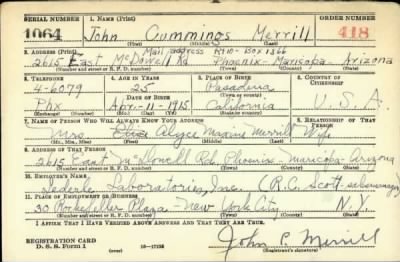 SERIAL NUMBER 1. NAME (Print) ORDER NUMBER
1064 John Cummings Merrill 418
(First) (Middle) (Last)
2. ADDRESS (Print) Mail address Rt 10-Box 1366
2615 East McDowell Rd Phoenix-Maricopa-Arizona
(Number and street or R. F. D. number) (Town) (County) (State)
3. TELEPHONE 4. AGE IN YEARS 5. PLACE OF BIRTH 6. COUNTRY OF CITIZENSHIP
4-6079 25 Pasadena
DATE OF BIRTH (Town or county)
Phx Apr.-11-1915 California U.S.A.
(Exchange) (Number) (Mo.) (Day) (Yr.) (State or country)
7. NAME OF PERSON WHO WILL ALWAYS KNOW YOUR ADDRESS 8. RELATIONSHIP OF THAT PERSON
Mrs. Alyce Maxine Merrill Wife
(Mr., Mrs., Miss) (First) (Middle) (Last)
9. ADDRESS OF THAT PERSON
2615 East McDowell Rd. Phoenix-Maricopa-Arizona
(Number and street or R. F. D. number) (Town) (County) (State)
10. EMPLOYER'S NAME
Lederle Laboratories, Inc. (R.C. Scott-salesmanager)
11. PLACE OF EMPLOYMENT OR BUSINESS
30 Rockefeller Plaza-New York City N.Y.
(Number and street or R. F. D. number) (Town) (County) (State)
I AFFIRM THAT I HAVE VERIFIED ABOVE ANSWERS AND THAT THEY ARE TRUE.
REGISTRATION CARD
D. S. S. Form 1 16-17105 John C. Merrill